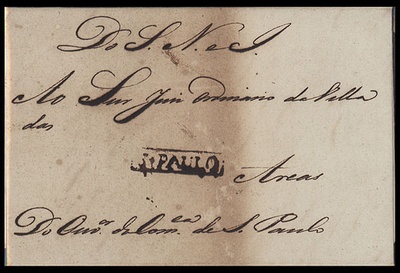 Do S. N. e I.
Ao Snr Juiz Ordinario da Villa
das
S. PAULO
Areas
Do Ouvor. da Comca. de S. Paulo